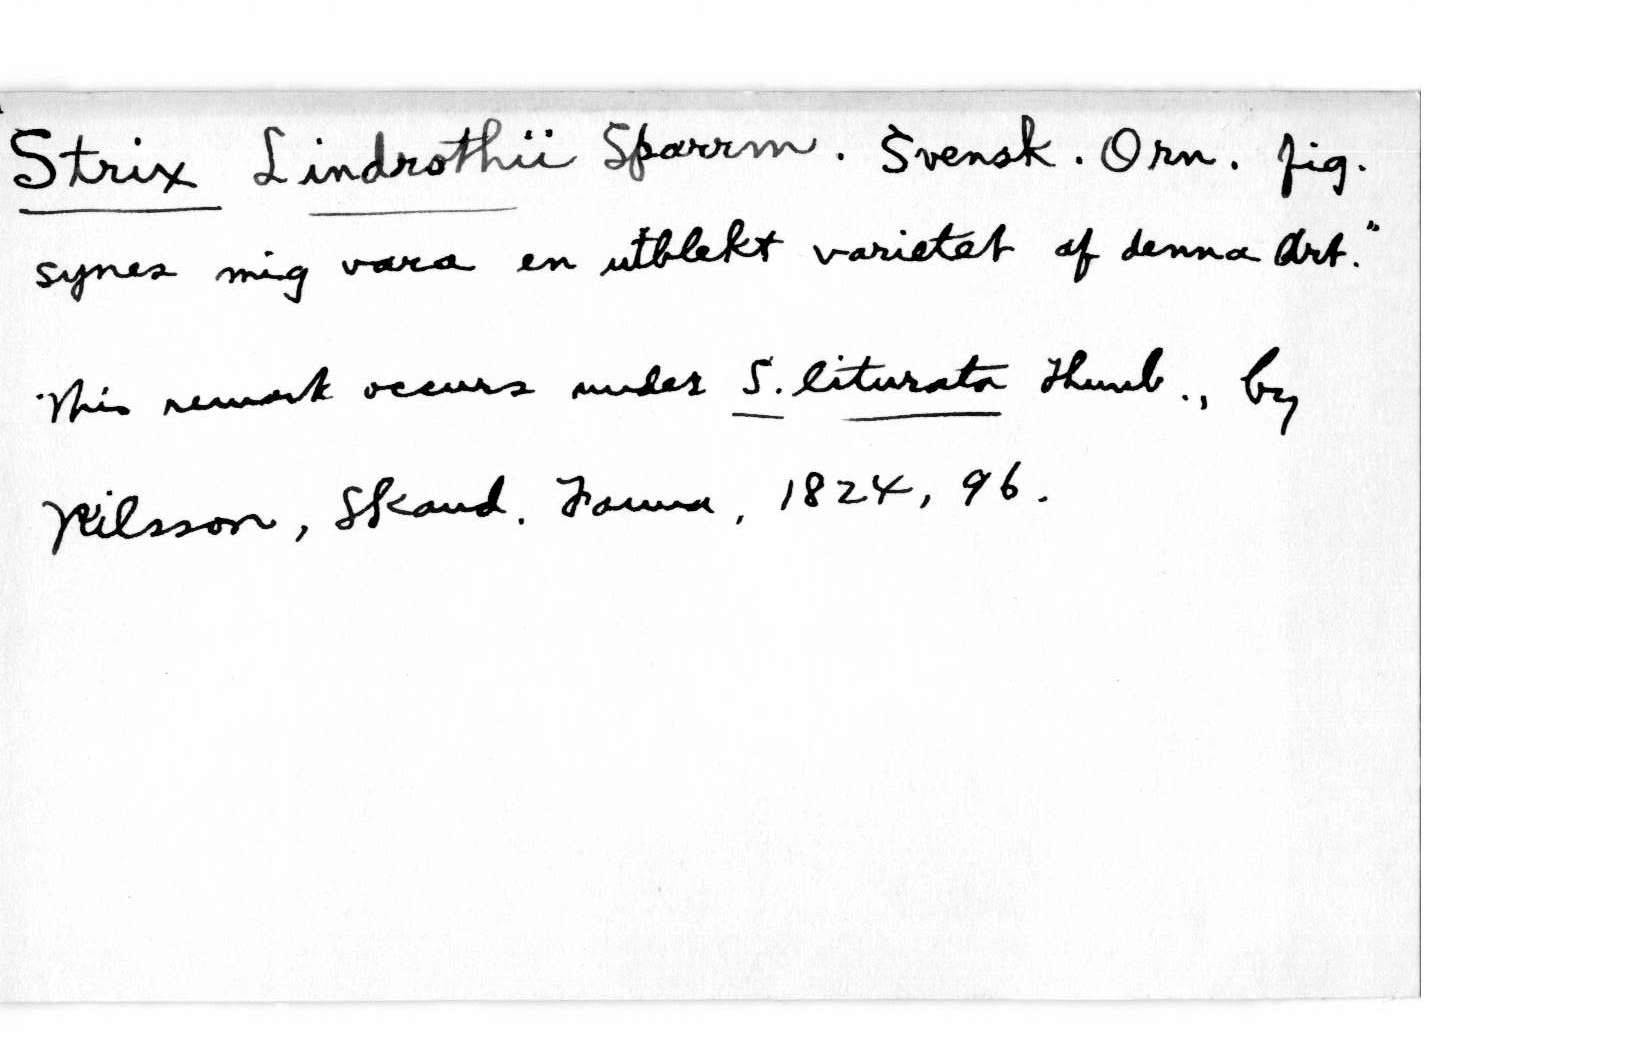 "Strix Lindrothii Sparrm. Svensk. Orn. fig.
synes mig vara en utblekt varietet af denna Art."
This remark occurs under S. liturata Thunb., by
Nilsson, Skand. Fauna, 1824, 96.